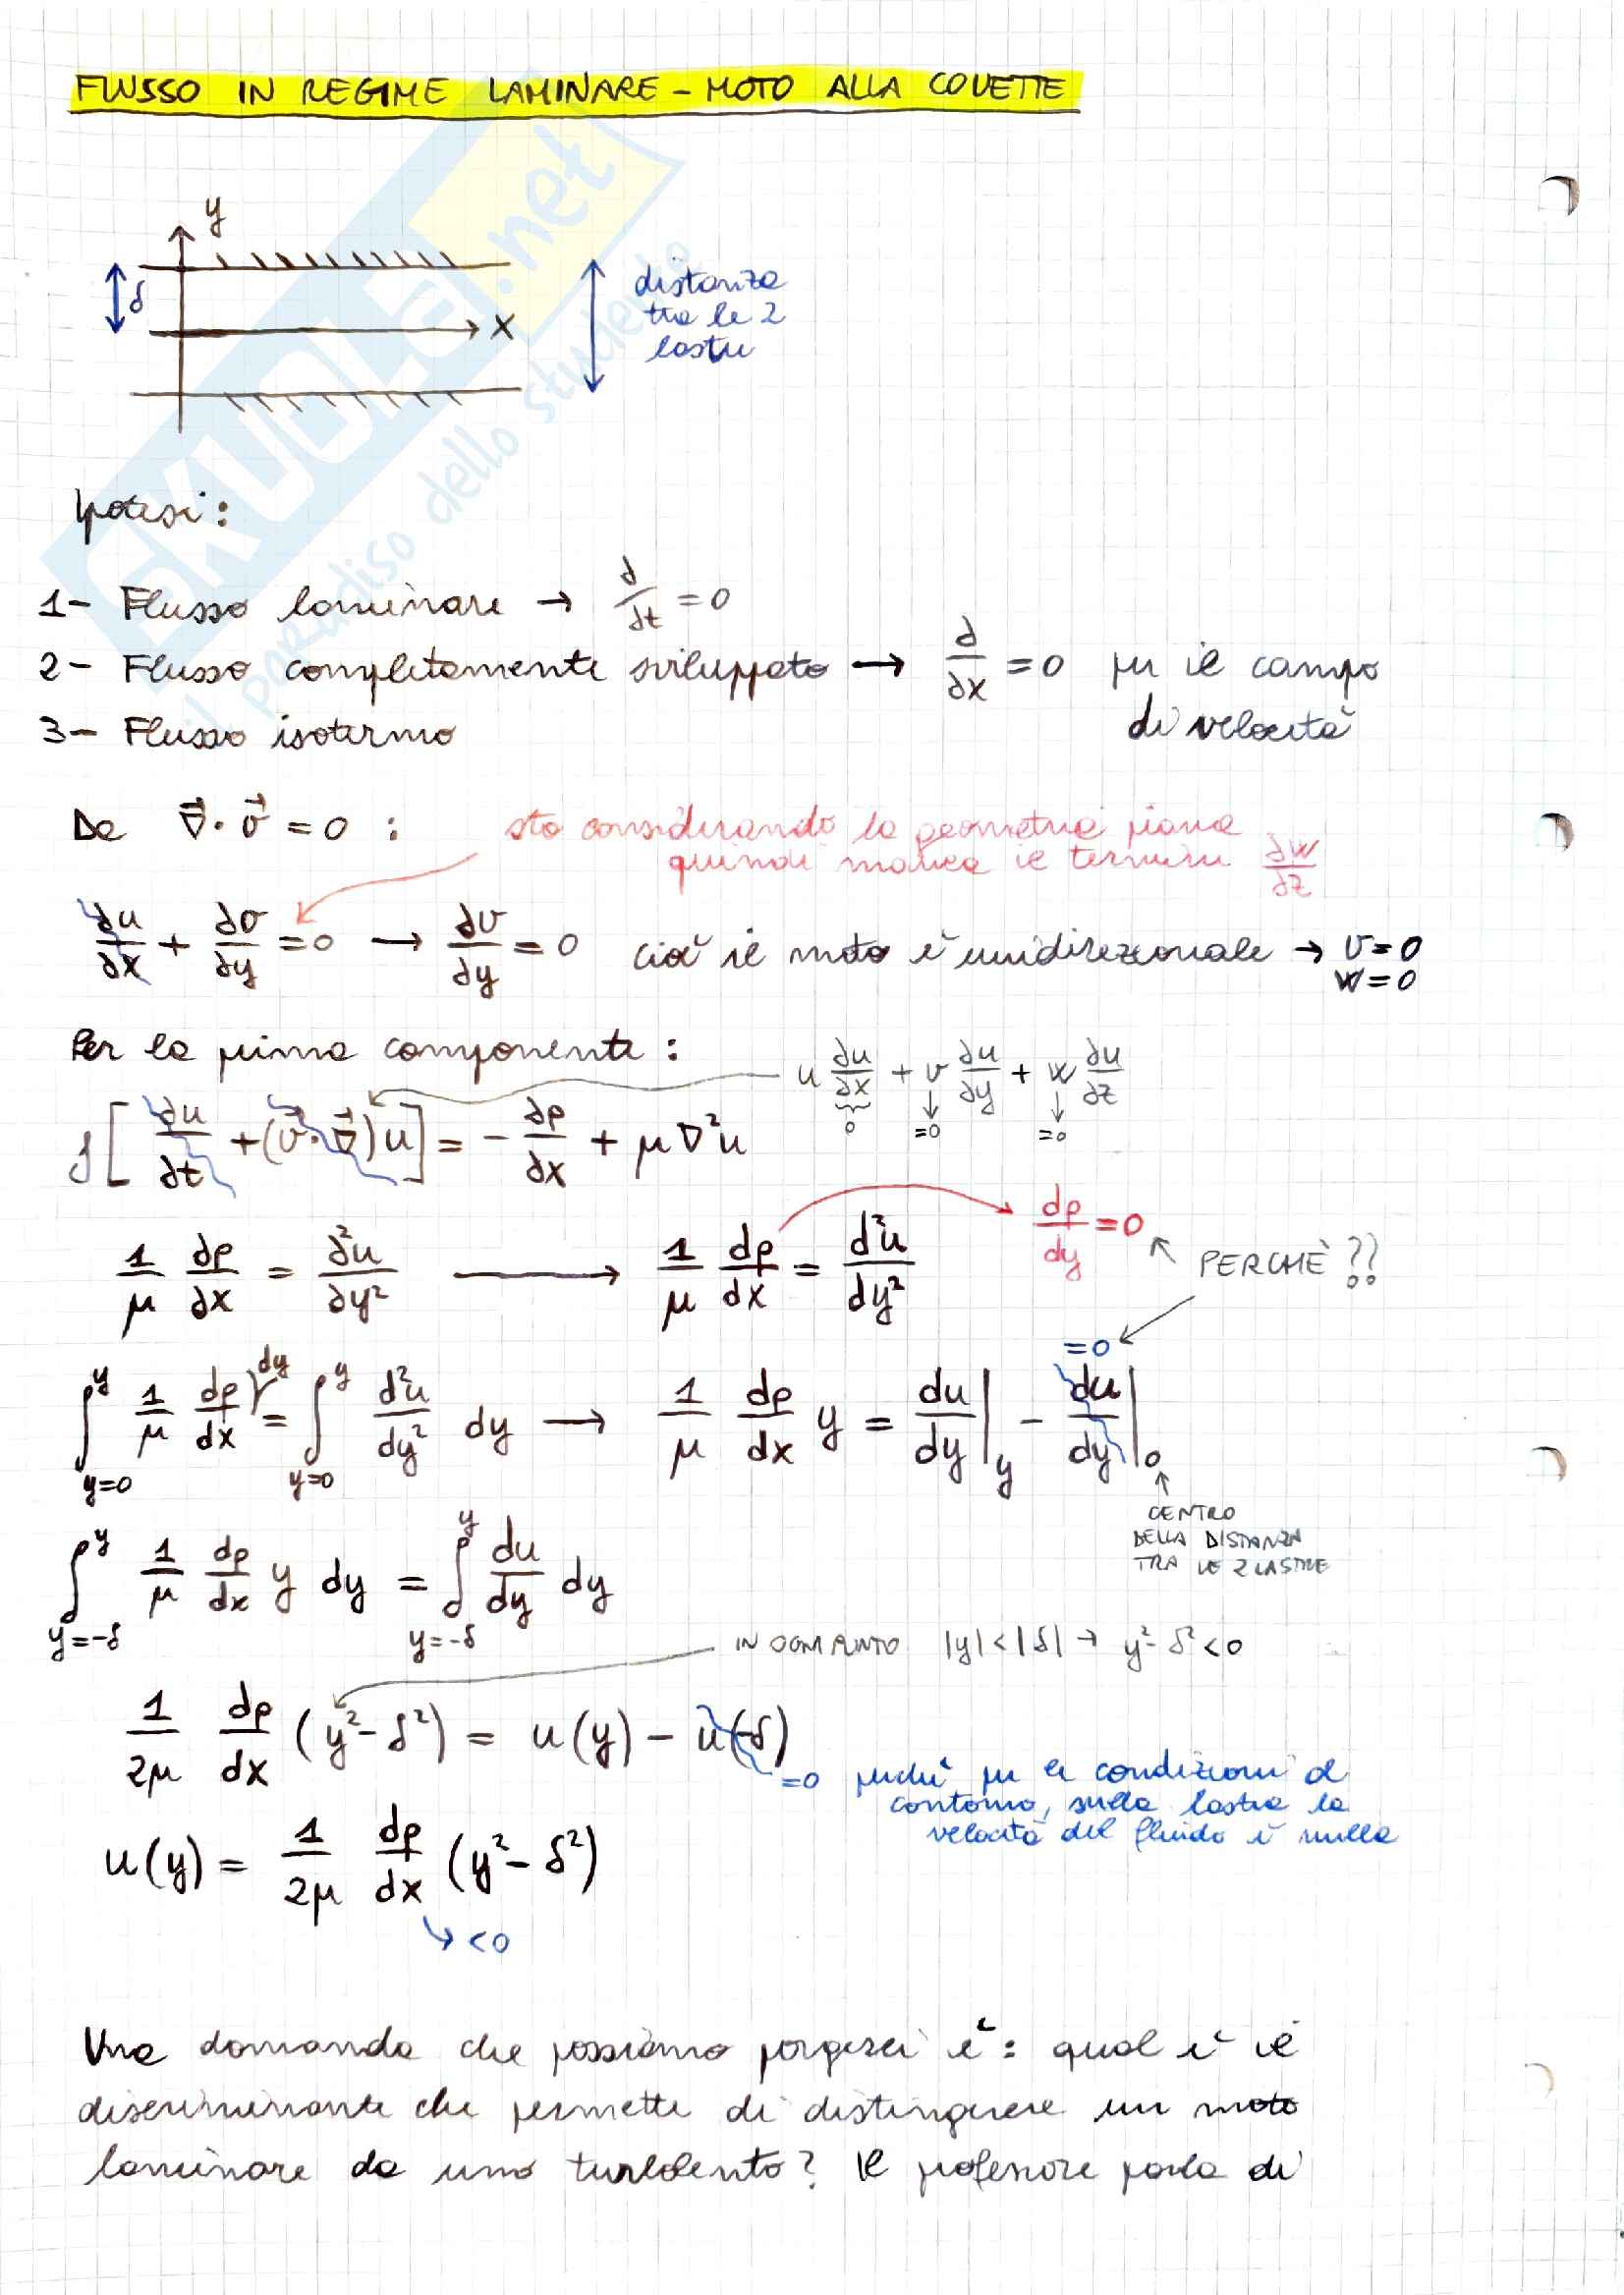 FLUSSO IN REGIME LAMINARE - MOTO ALLA COUETTE
SKUOLA.net
il paradiso dello studente
y
δ
x
distanza
tra le 2
lastre
Ipotesi:
1- Flusso laminare → ∂/∂t = 0
2- Flusso completamente sviluppato → ∂/∂x = 0 per il campo
di velocità
3- Flusso isotermo
Da ∇⃗·v⃗ = 0 :
sto considerando la geometria piana
quindi manca il termine ∂w/∂z
∂u/∂x + ∂v/∂y = 0 → ∂v/∂y = 0 cioè il moto è unidirezionale → v=0
w=0
Per la prima componente:
u ∂u/∂x + v ∂u/∂y + w ∂u/∂z
0 =0 =0
ρ[∂u/∂t + (v⃗·∇⃗)u] = - ∂p/∂x + μ∇²u
1/μ ∂p/∂x = ∂²u/∂y² → 1/μ dp/dx = d²u/dy²
dp/dy = 0
PERCHÈ ??
∫_{y=0}^{y} 1/μ dp/dx dy = ∫_{y=0}^{y} d²u/dy² dy → 1/μ dp/dx y = du/dy|_y - du/dy|_0
=0
CENTRO
DELLA DISTANZA
TRA LE 2 LASTRE
∫_{y=-δ}^{y} 1/μ dp/dx y dy = ∫_{y=-δ}^{y} du/dy dy
IN OGNI PUNTO |y|<|δ| → y²-δ²<0
1/2μ dp/dx (y²-δ²) = u(y) - u(-δ)
=0 perché per le condizioni al
contorno, sulla lastra la
velocità del fluido è nulla
u(y) = 1/2μ dp/dx (y²-δ²)
↳ <0
Una domanda che possiamo porgerci è: qual è il
discriminante che permette di distinguere un moto
laminare da uno turbolento? Il professore parla di